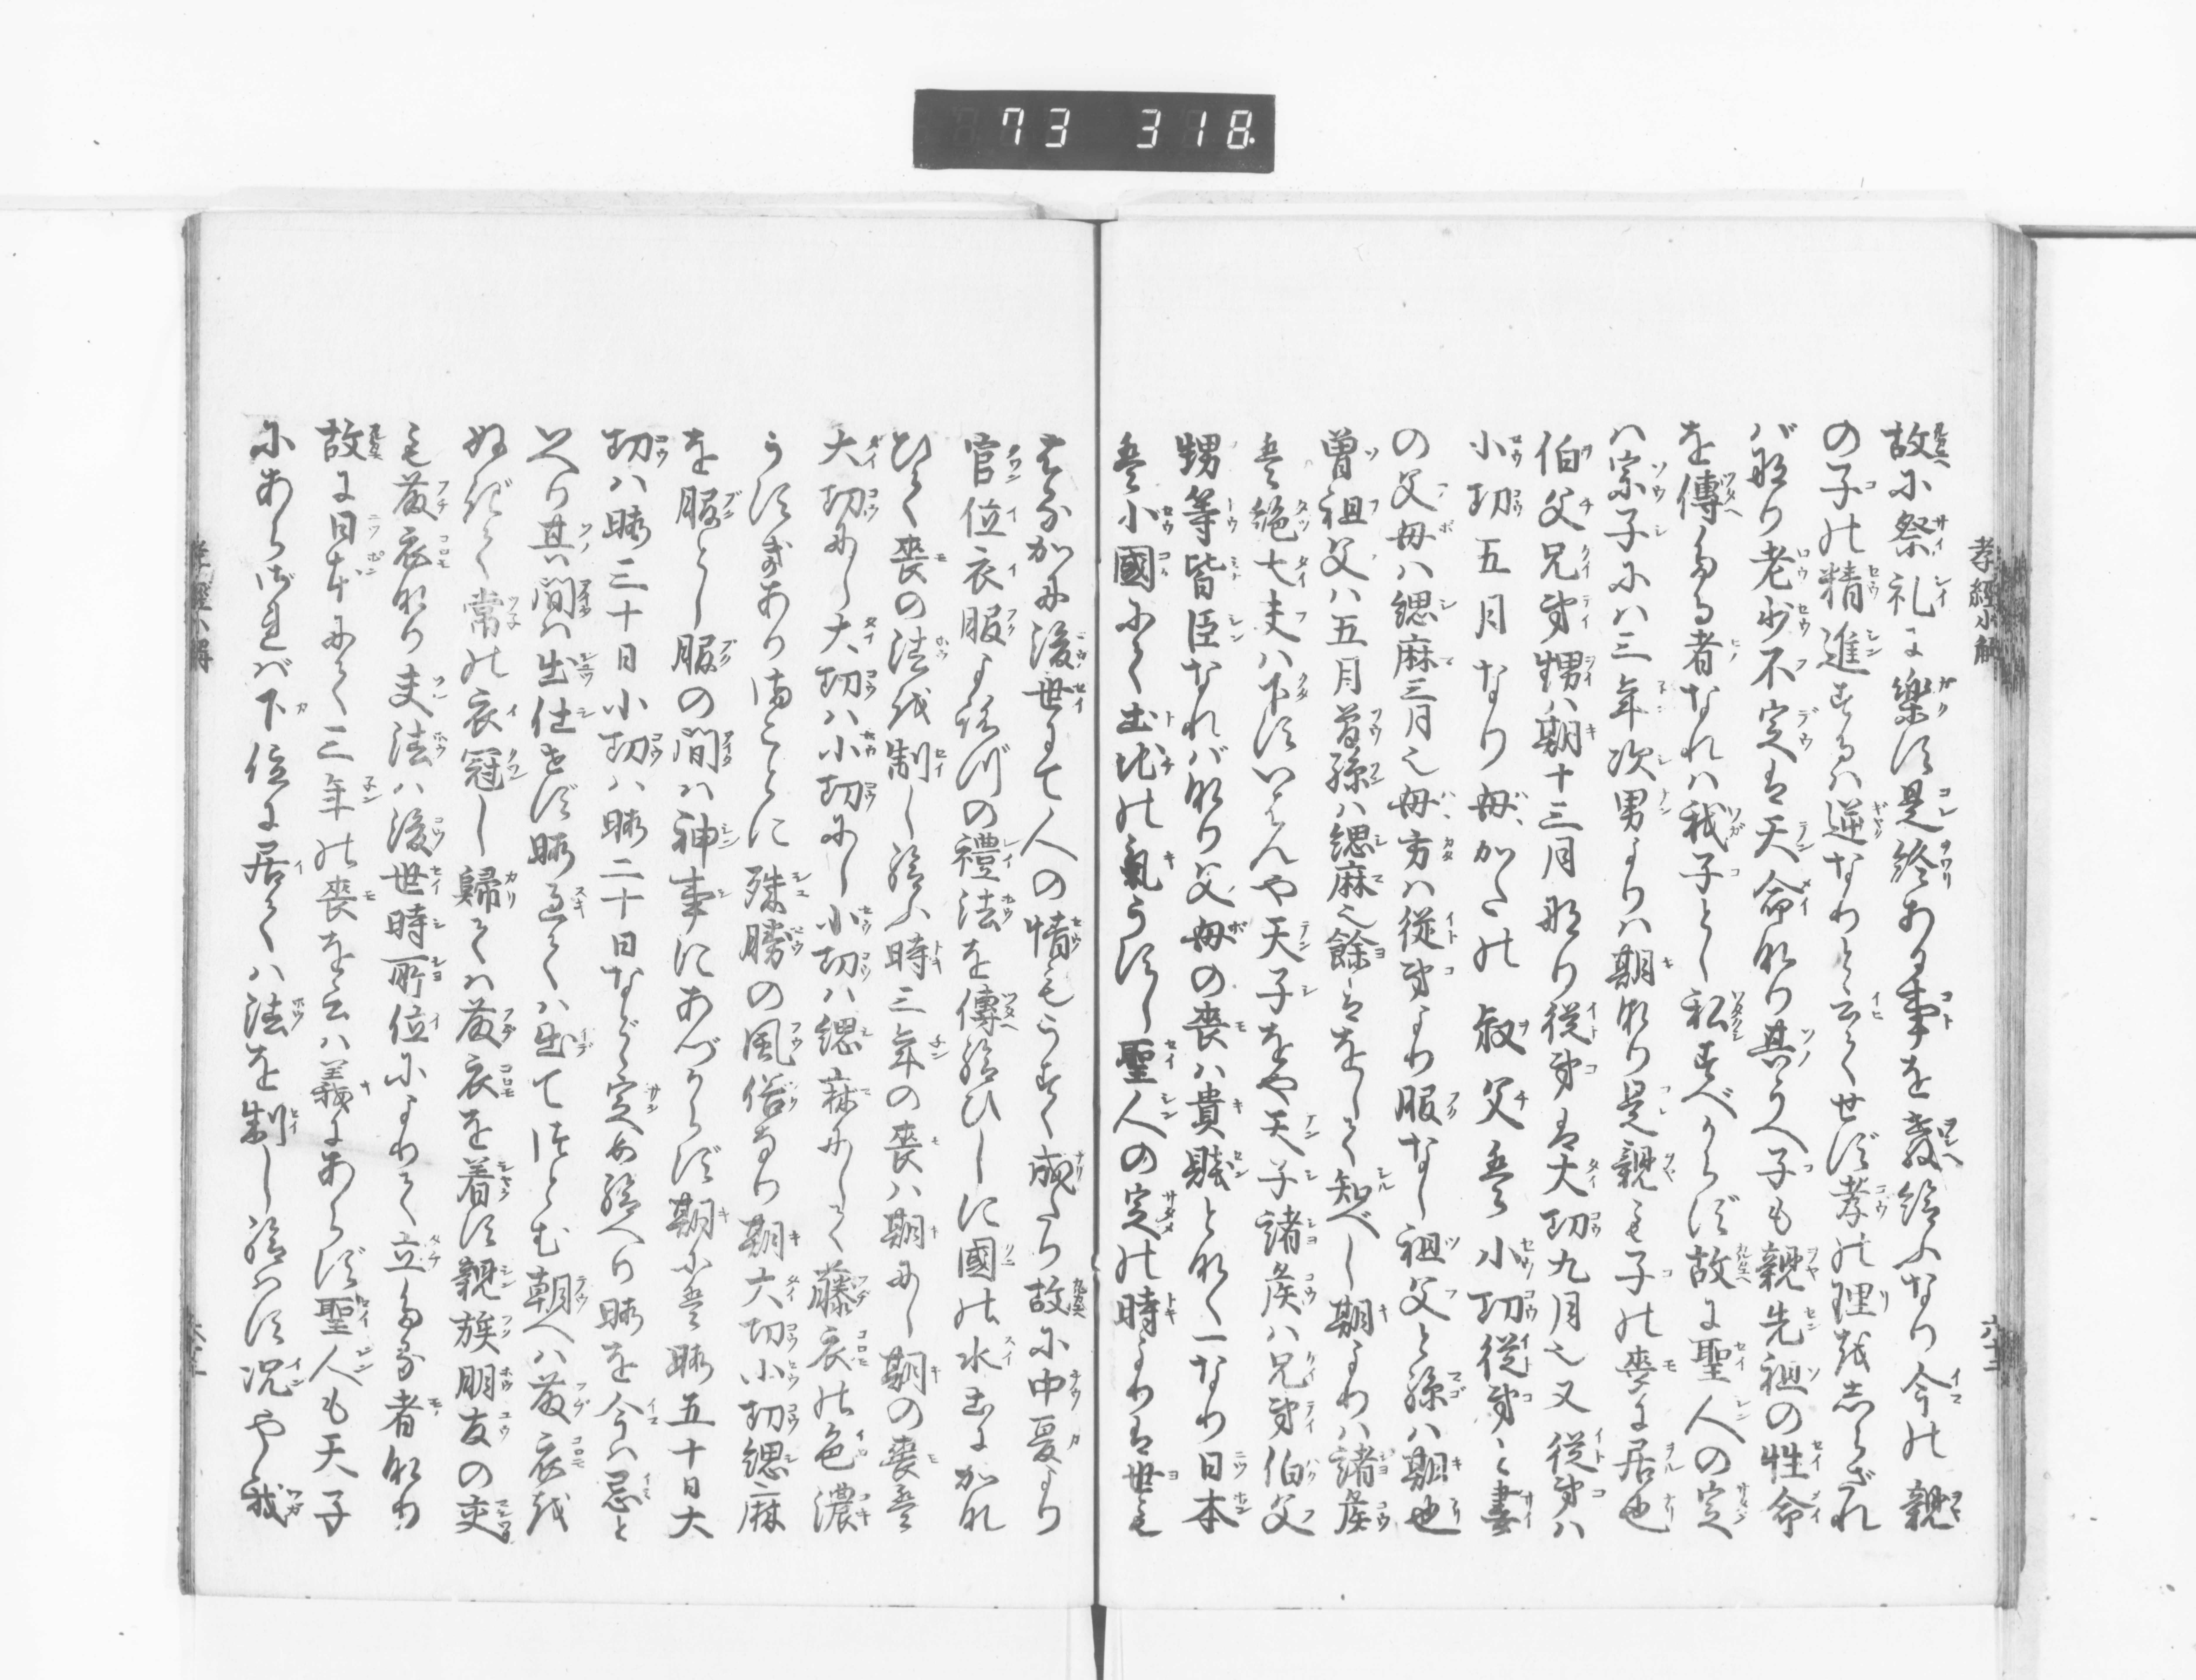 73 318
孝經小解
六十二
故に祭礼に樂す是終ある事を教給ふなり今の親
の子の精進するは逆なりと云て世ず孝の理を志らざれ
ば也り老少不定は天命なり其うへ子も親先祖の性命
を傳へたる者なれは我子とし私すべからず故に聖人の定
ハ宗子にハ三年次男よりハ期なり是親も子の喪に居也
伯父兄弟甥ハ期十三月なり従弟は大功九月也又従弟ハ
小功五月なり母かたの叔父若小功従弟妻
の父母ハ緦麻三月也母方は従弟より服なし祖父と孫ハ期也
曽祖父ハ五月曽孫ハ緦麻也餘はをして知べし期よりハ諸侯
は絶七夫ハ下すいはんや天子をや天子諸侯ハ兄弟伯父
甥等皆臣なればなり父母の喪ハ貴賤となく一なり日本
は小國にて土地の氣うすし聖人の定の時よりは世も
はるかに後世にて人の情もうすく成たり故に中夏より
官位衣服よろづの禮法を傳給ひしに國の水土にかなれ
ひて喪の法を制し給ふ時三年の喪ハ期にし期の喪は
大功にし大功ハ小功にし小功ハ緦麻にして藤衣の色濃
うすきあり海ことに殊勝の風俗なり期大功小功緦麻
を服とし服の間ハ神事にあづからず期には暇五十日大
功ハ暇三十日小功ハ暇二十日など定め給へり暇を今ハ忌と
いへり其間ハ出仕せず暇過てハ出てつとむ朝へハ藤衣を
ぬぎて常の衣冠し歸てハ藤衣を着す親族朋友の交
も藤衣なり夫法ハ後世時所位によりて立たる者なり
故に日本にて三年の喪を云ハ義にあらず聖人も天子
にあらざれバ下位に居てハ法を制し給はす况や我